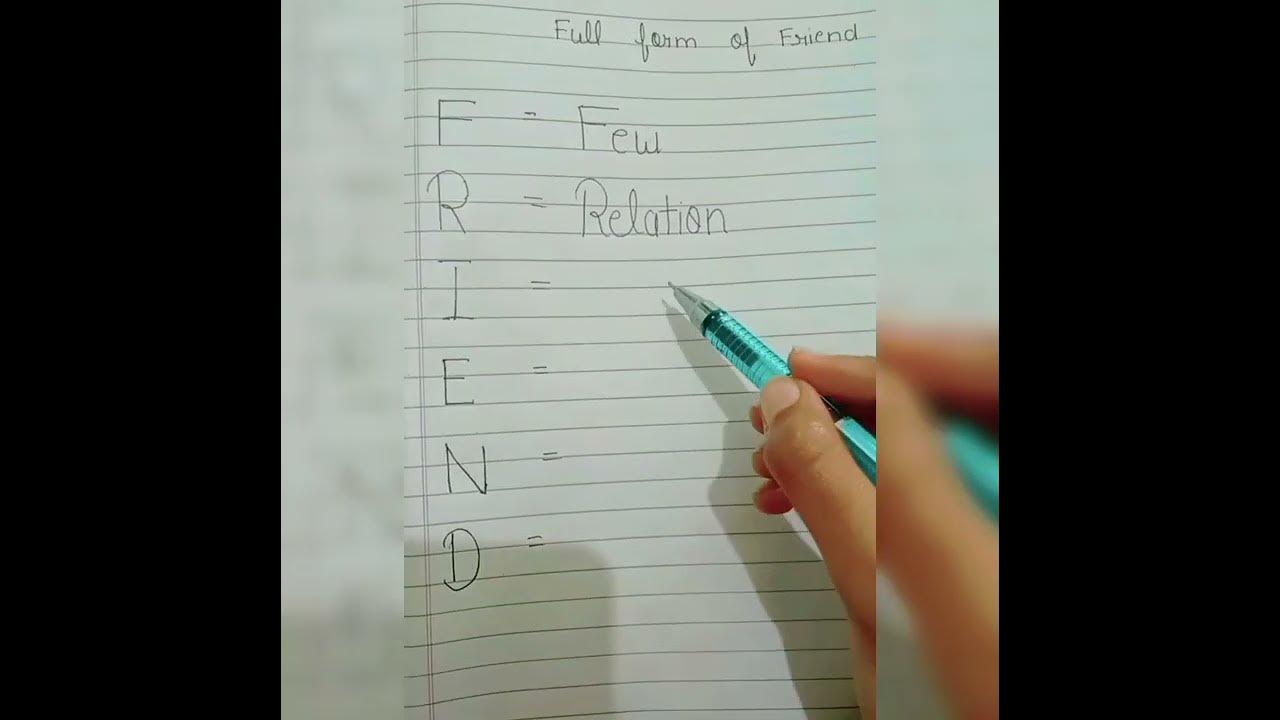 Full form of Friend
F = Few
R = Relation
I =
E =
N =
D =